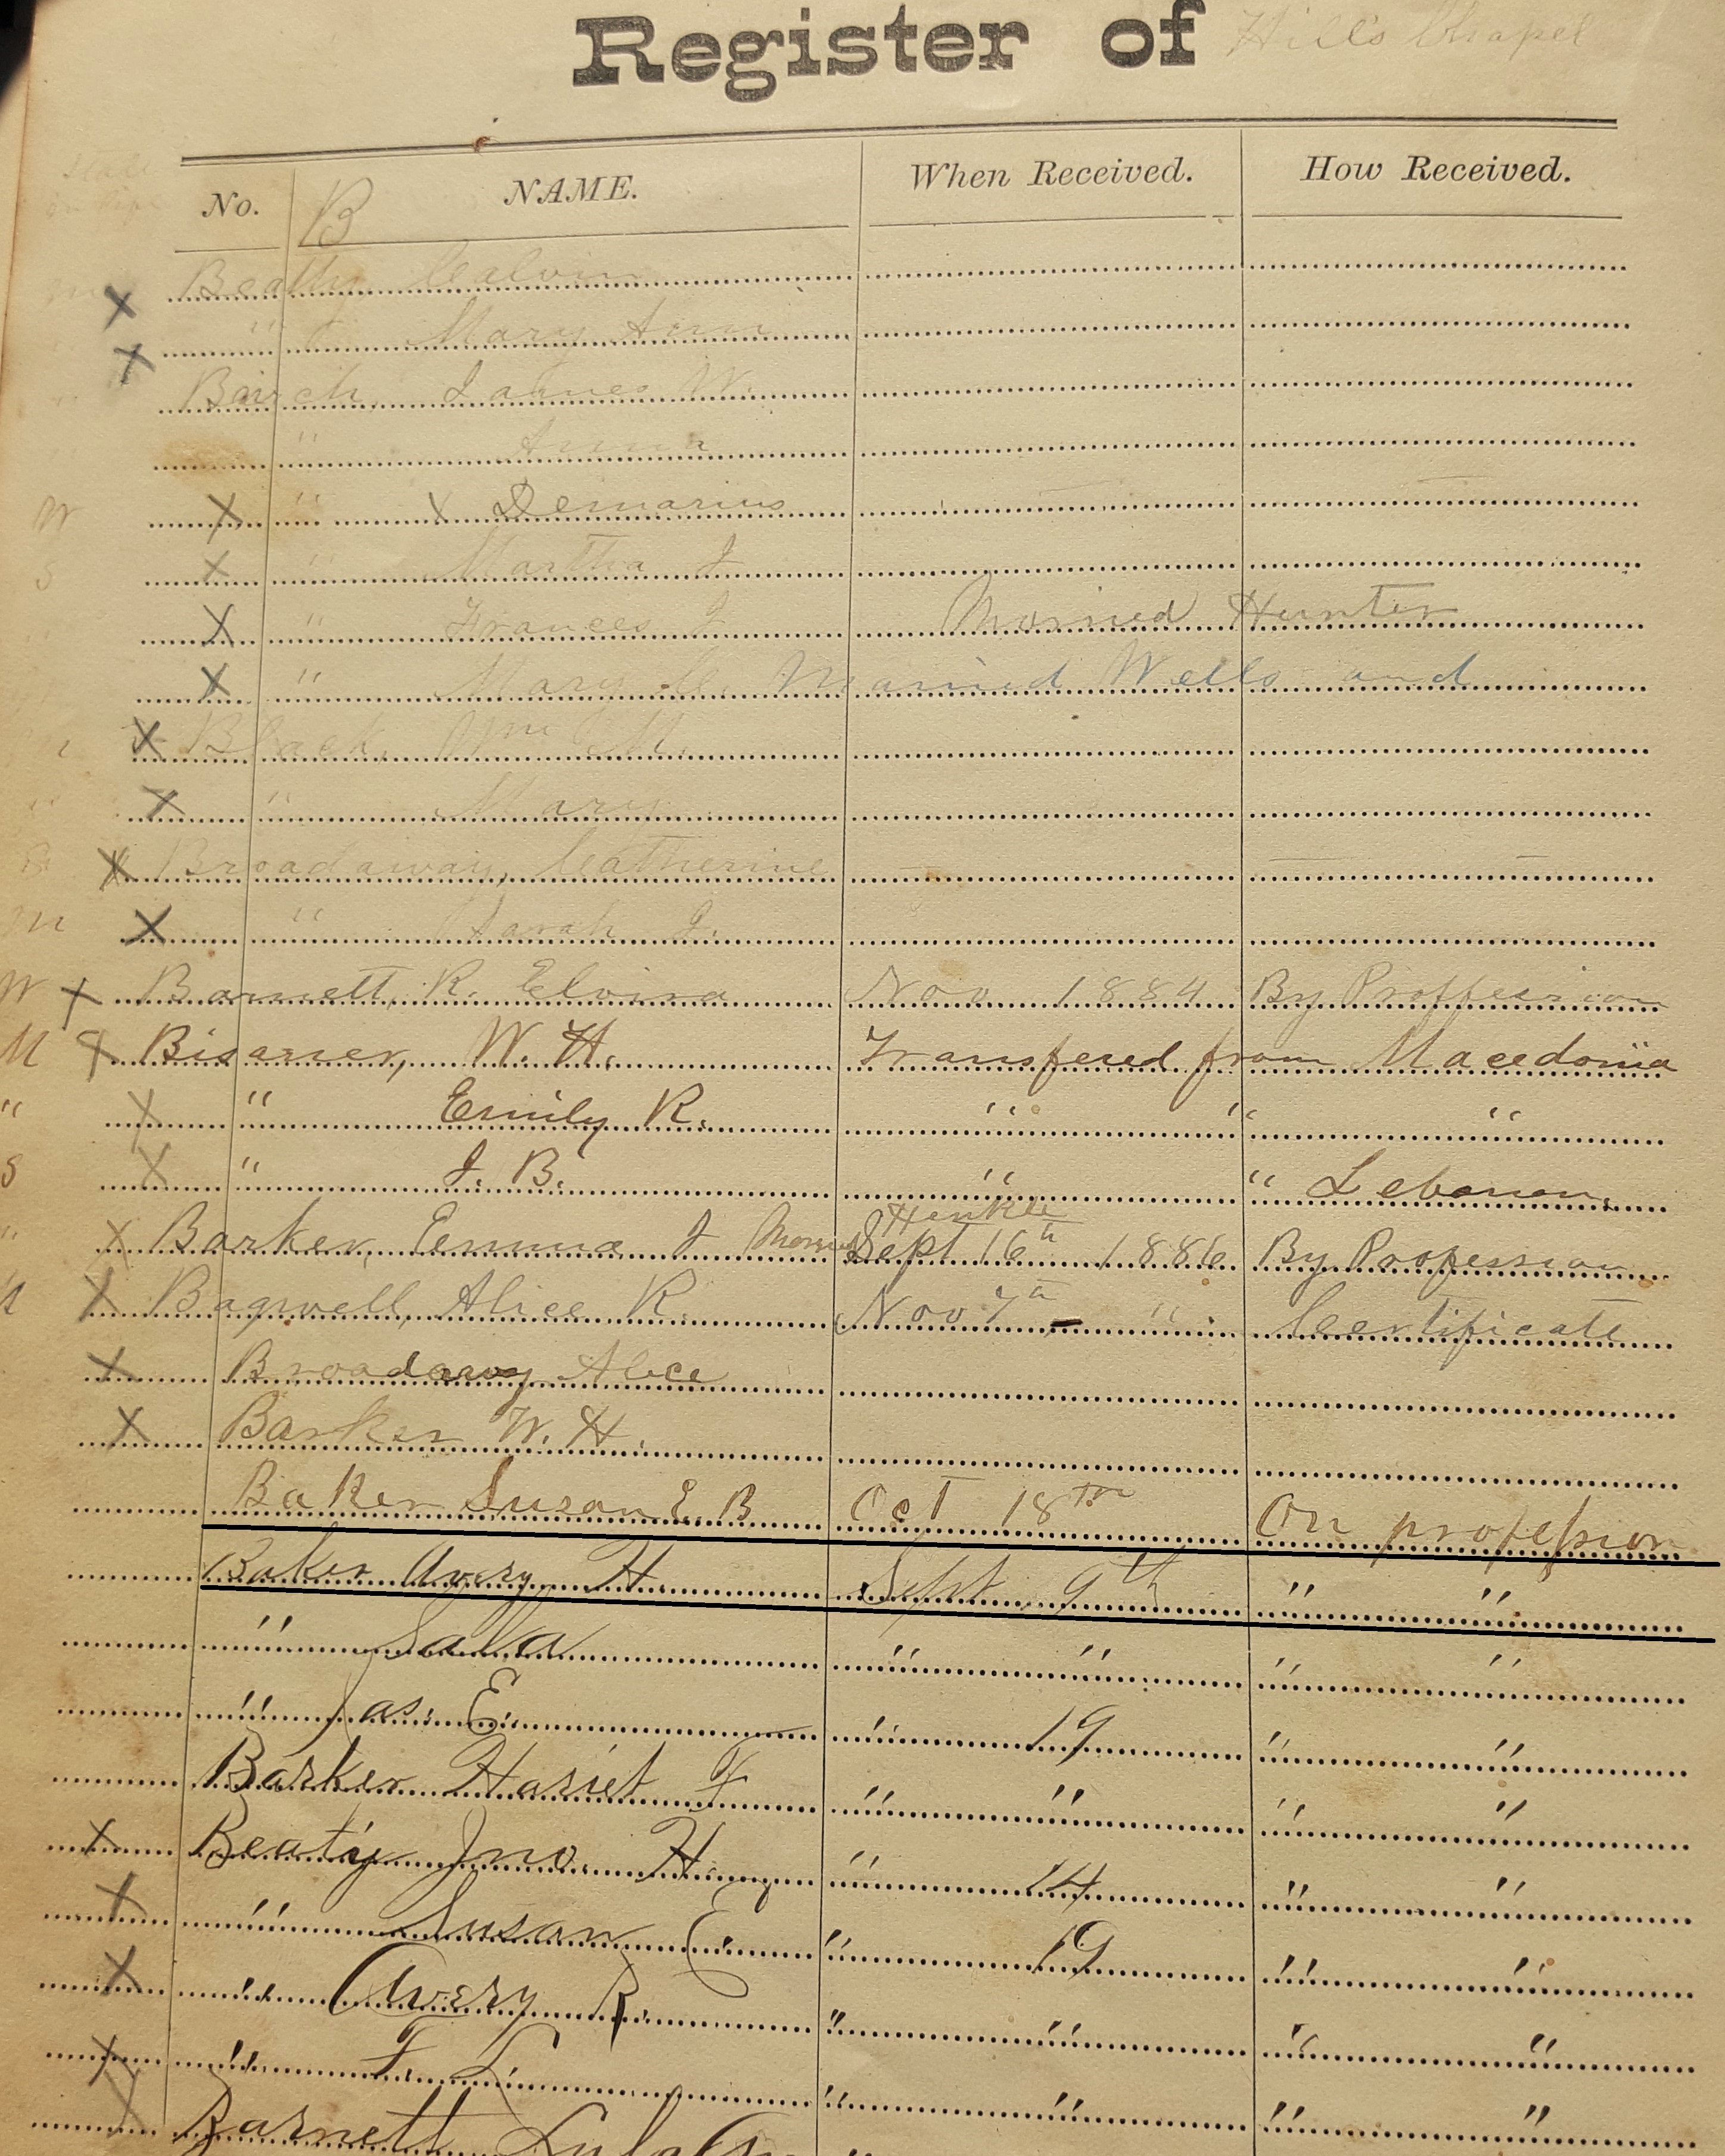 Register of Hill's Chapel
No. B NAME. When Received. How Received.
X Beatty Calvin
X " Mary Ann
Barch, James W.
" Anna
W X " X Demarius
S X " Martha J
X " Frances J Married Hunter
X " Mary C. Married Wells and
X Black, Wm M.
X " Mary
X Broadaway, Catherine
m X " Sarah J.
W X Barnett, R. Elvira Nov 1884 By Proffession
M X Bisaner, W. H. Transfered from Macedonia
" X " Emily R. " " "
S X " J. B. " " Lebanon.
" X Barker, Emma J Married Henkle Sept 16th 1886 By Profession
X Bagwell, Alice R. Nov 7th " Certificate
X Broadaway Alice
X Barker W. H.
Baker Susan E. B Oct 18th On profession
Baker Avery H. Sept 9th " "
" " " " "
" Jas. E. " 19 " "
Barker Hariet F " " " "
X Beaty Jno. H. " 14 " "
X " Susan E. " 19 " "
X " Avery R. " " " "
X " F. L. " " " "
X Barnett Lula "